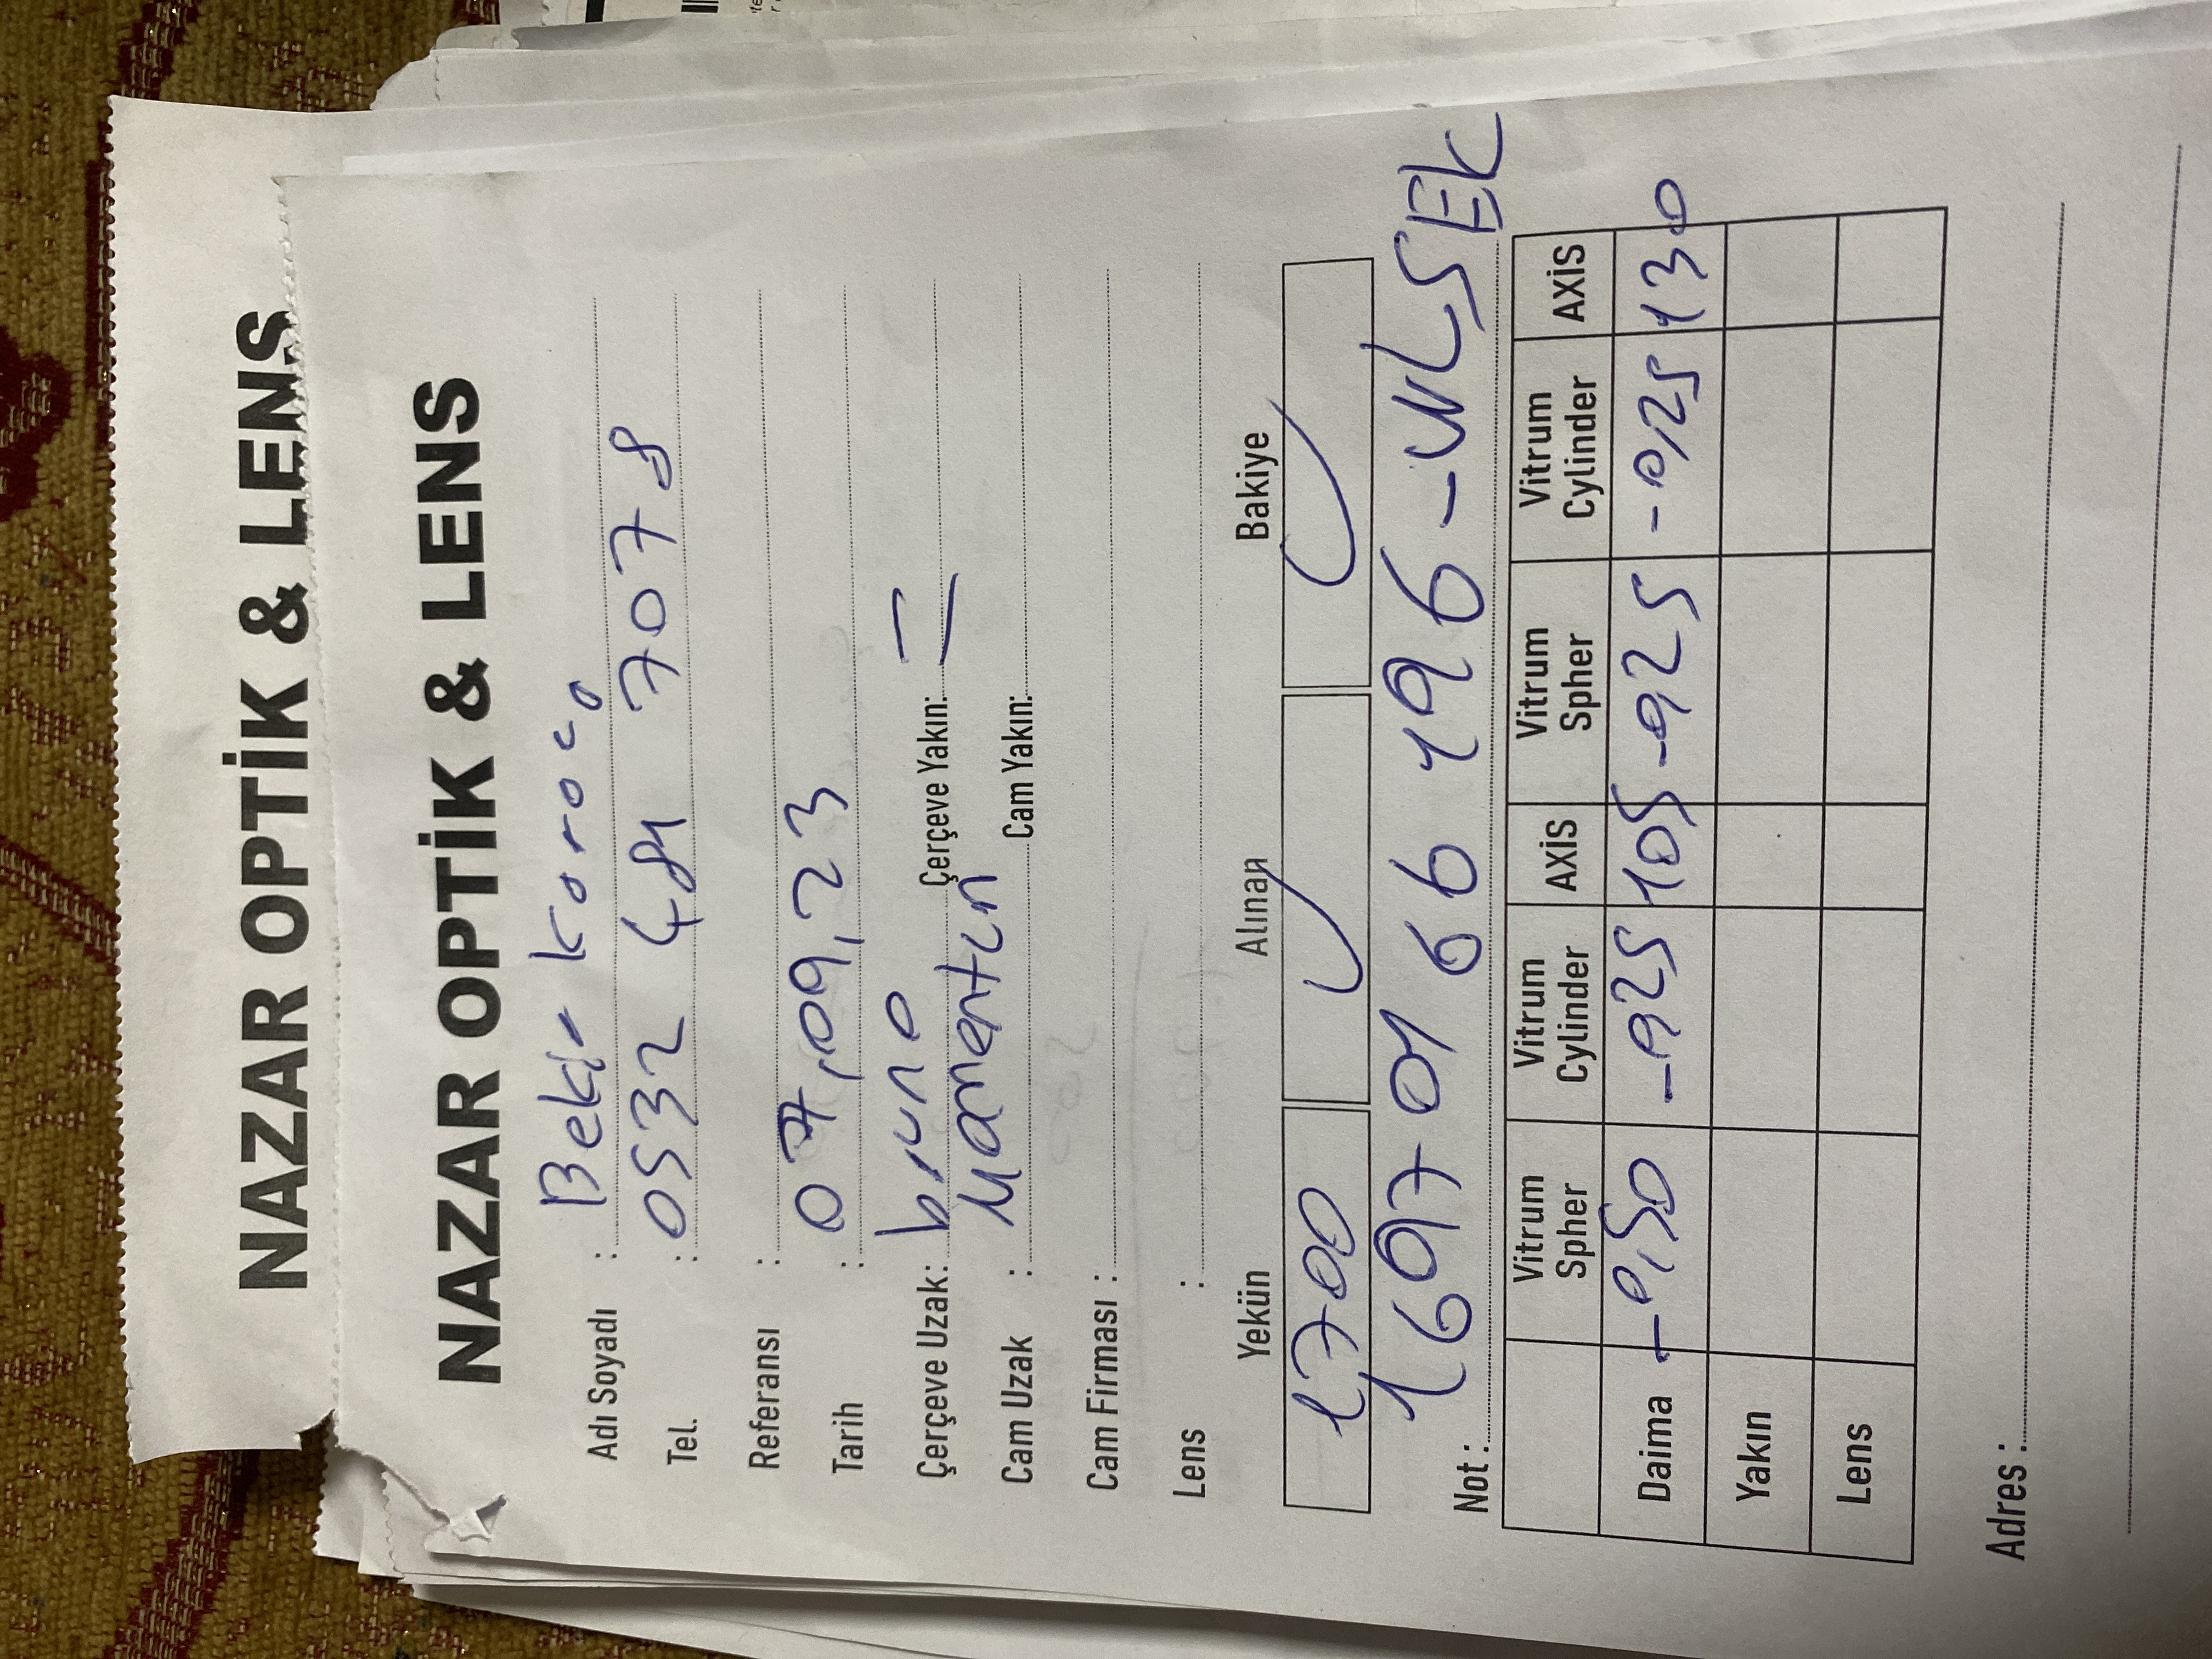 NAZAR OPTİK & LENS
NAZAR OPTİK & LENS
Adı Soyadı : Bekir Koroca
Tel. : 0532 481 7078
Referansı :
Tarih : 07,09,23
Çerçeve Uzak: bruno Çerçeve Yakın:
Cam Uzak : Cam Yakın:
Cam Firması :
Lens :
Yekün Alınan Bakiye
1700
Not : 1697 01 66 196 - WLSEK
Vitrum Spher Vitrum Cylinder AXİS Vitrum Spher Vitrum Cylinder AXİS
Daima -0,50 -0,25 105 -0,25 -0,25 130
Yakın
Lens
Adres :